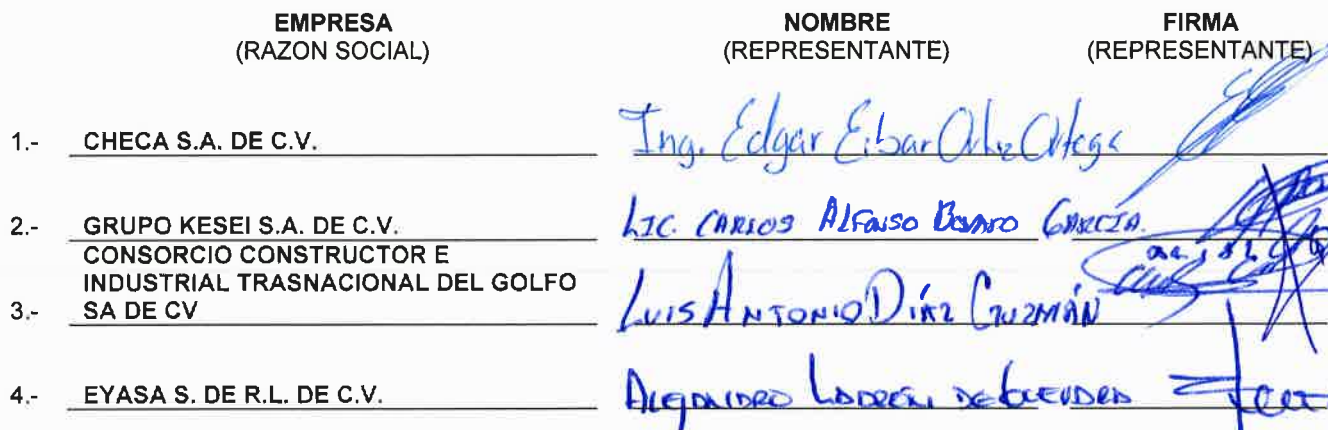 EMPRESA NOMBRE FIRMA
(RAZON SOCIAL) (REPRESENTANTE) (REPRESENTANTE)
1.- CHECA S.A. DE C.V. Ing. Edgar Eibar Ortiz Ortega
2.- GRUPO KESEI S.A. DE C.V. LIC. CARLOS ALFONSO GARCÍA.
CONSORCIO CONSTRUCTOR E
INDUSTRIAL TRASNACIONAL DEL GOLFO
3.- SA DE CV LUIS ANTONIO DÍAZ GUZMÁN
4.- EYASA S. DE R.L. DE C.V. ALEJANDRO LADRÓN DE GUEVARA